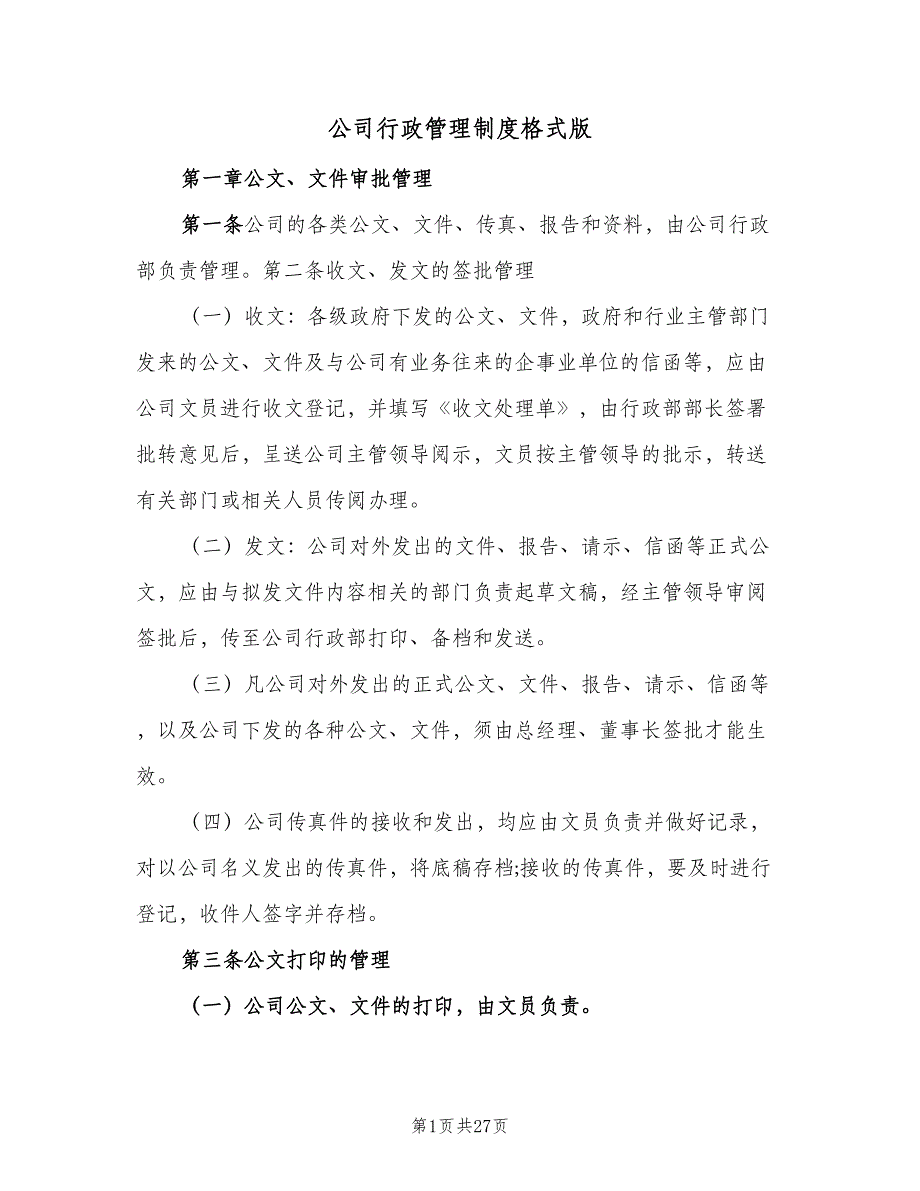 公司行政管理制度格式版
第一章公文、文件审批管理
第一条公司的各类公文、文件、传真、报告和资料，由公司行政
部负责管理。第二条收文、发文的签批管理
（一）收文：各级政府下发的公文、文件，政府和行业主管部门
发来的公文、文件及与公司有业务往来的企事业单位的信函等，应由
公司文员进行收文登记，并填写《收文处理单》，由行政部部长签署
批转意见后，呈送公司主管领导阅示，文员按主管领导的批示，转送
有关部门或相关人员传阅办理。
（二）发文：公司对外发出的文件、报告、请示、信函等正式公
文，应由与拟发文件内容相关的部门负责起草文稿，经主管领导审阅
签批后，传至公司行政部打印、备档和发送。
（三）凡公司对外发出的正式公文、文件、报告、请示、信函等
，以及公司下发的各种公文、文件，须由总经理、董事长签批才能生
效。
（四）公司传真件的接收和发出，均应由文员负责并做好记录，
对以公司名义发出的传真件，将底稿存档;接收的传真件，要及时进行
登记，收件人签字并存档。
第三条公文打印的管理
（一）公司公文、文件的打印，由文员负责。
第1页共27页